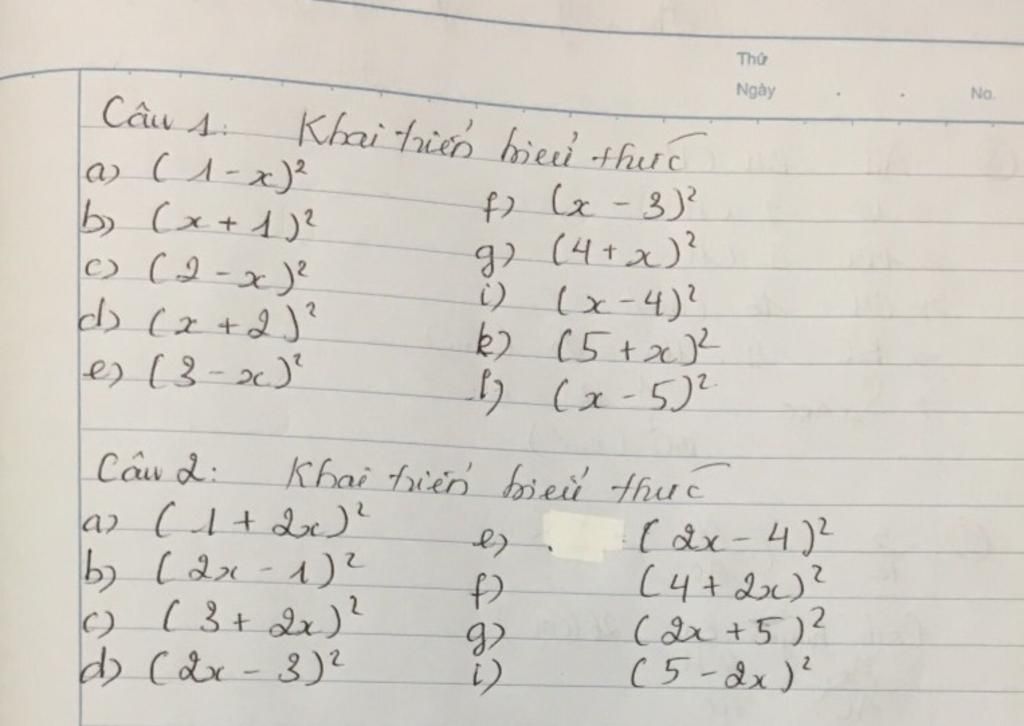 Thứ
Ngày . . No.
Câu 1: Khai triển biểu thức
a) (1 - x)²
b) (x + 1)²
c) (2 - x)²
d) (x + 2)²
e) (3 - x)²
f) (x - 3)²
g) (4 + x)²
i) (x - 4)²
k) (5 + x)²
l) (x - 5)²
Câu 2: Khai triển biểu thức
a) (1 + 2x)²
b) (2x - 1)²
c) (3 + 2x)²
d) (2x - 3)²
e) (2x - 4)²
f) (4 + 2x)²
g) (2x + 5)²
i) (5 - 2x)²